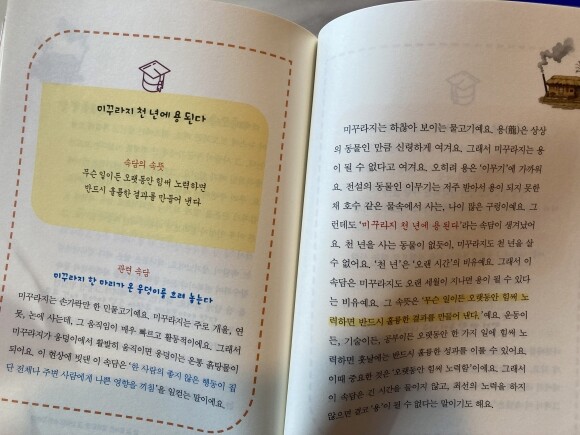 미꾸라지 천 년에 용 된다
속담의 속뜻
무슨 일이든 오랫동안 힘써 노력하면
반드시 훌륭한 결과를 만들어 낸다
관련 속담
미꾸라지 한 마리가 온 웅덩이를 흐려 놓는다
미꾸라지는 손가락만 한 민물고기예요. 미꾸라지는 주로 개울, 연
못, 논에 사는데, 그 움직임이 매우 빠르고 활동적이에요. 그래서
미꾸라지가 웅덩이에서 활발히 움직이면 웅덩이는 온통 흙탕물이
되이요. 이 현상에 빗댄 이 속담은 '한 사람의 좋지 않은 행동이 집
단 전체나 주변 사람에게 나쁜 영향을 끼침'을 일컫는 말이에요.
미꾸라지는 하찮아 보이는 물고기예요. 용(龍)은 상상
의 동물인 만큼 신령하게 여겨요. 그래서 미꾸라지는 용
이 될 수 없다고 여겨요. 오히려 용은 '이무기'에 가까워
요. 전설의 동물인 이무기는 저주 받아서 용이 되지 못한
채 호수 같은 물속에서 사는, 나이 많은 구렁이예요. 그
런데도 '미꾸라지 천 년에 용 된다'라는 속담이 생겨났어
요. 천 년을 사는 동물이 없듯이, 미꾸라지도 천 년을 살
수 없어요. '천 년'은 '오랜 시간'의 비유예요. 그래서 이
속담은 미꾸라지도 오랜 세월이 지나면 용이 될 수 있다
는 비유예요. 그 속뜻은 '무슨 일이든 오랫동안 힘써 노
력하면 반드시 훌륭한 결과를 만들어 낸다.'예요. 운동이
든, 기술이든, 공부이든 오랫동안 한 가지 일에 힘써 노
력하면 훗날에는 반드시 훌륭한 성과를 이룰 수 있어요.
이때 중요한 것은 '오랫동안 노력함'이에요. 그래서 이
속담은 긴 시간을 들이지 않고, 최선의 노력을 하지
않으면 결코 '용'이 될 수 없다는 말이기도 해요.